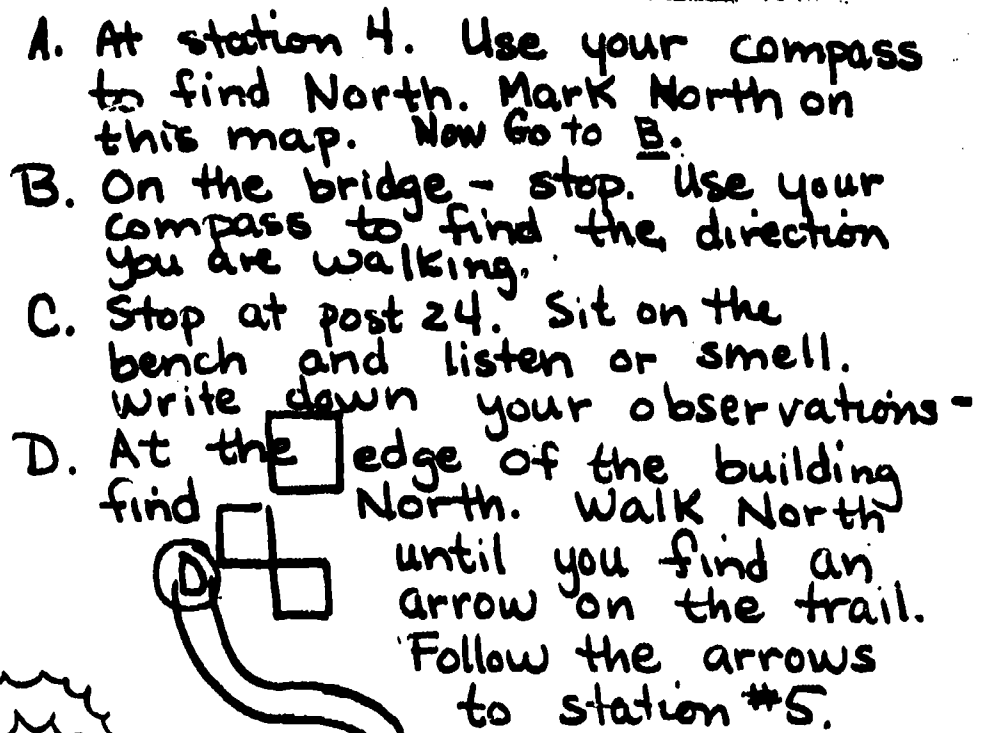 A. At station 4. Use your compass
to find North. Mark North on
this map. Now Go to B.
B. On the bridge - stop. Use your
compass to find the direction
you are walking.
C. Stop at post 24. Sit on the
bench and listen or smell.
Write down your observations-
D. At the edge of the building
find North. Walk North
until you find an
arrow on the trail.
Follow the arrows
to station #5.
D